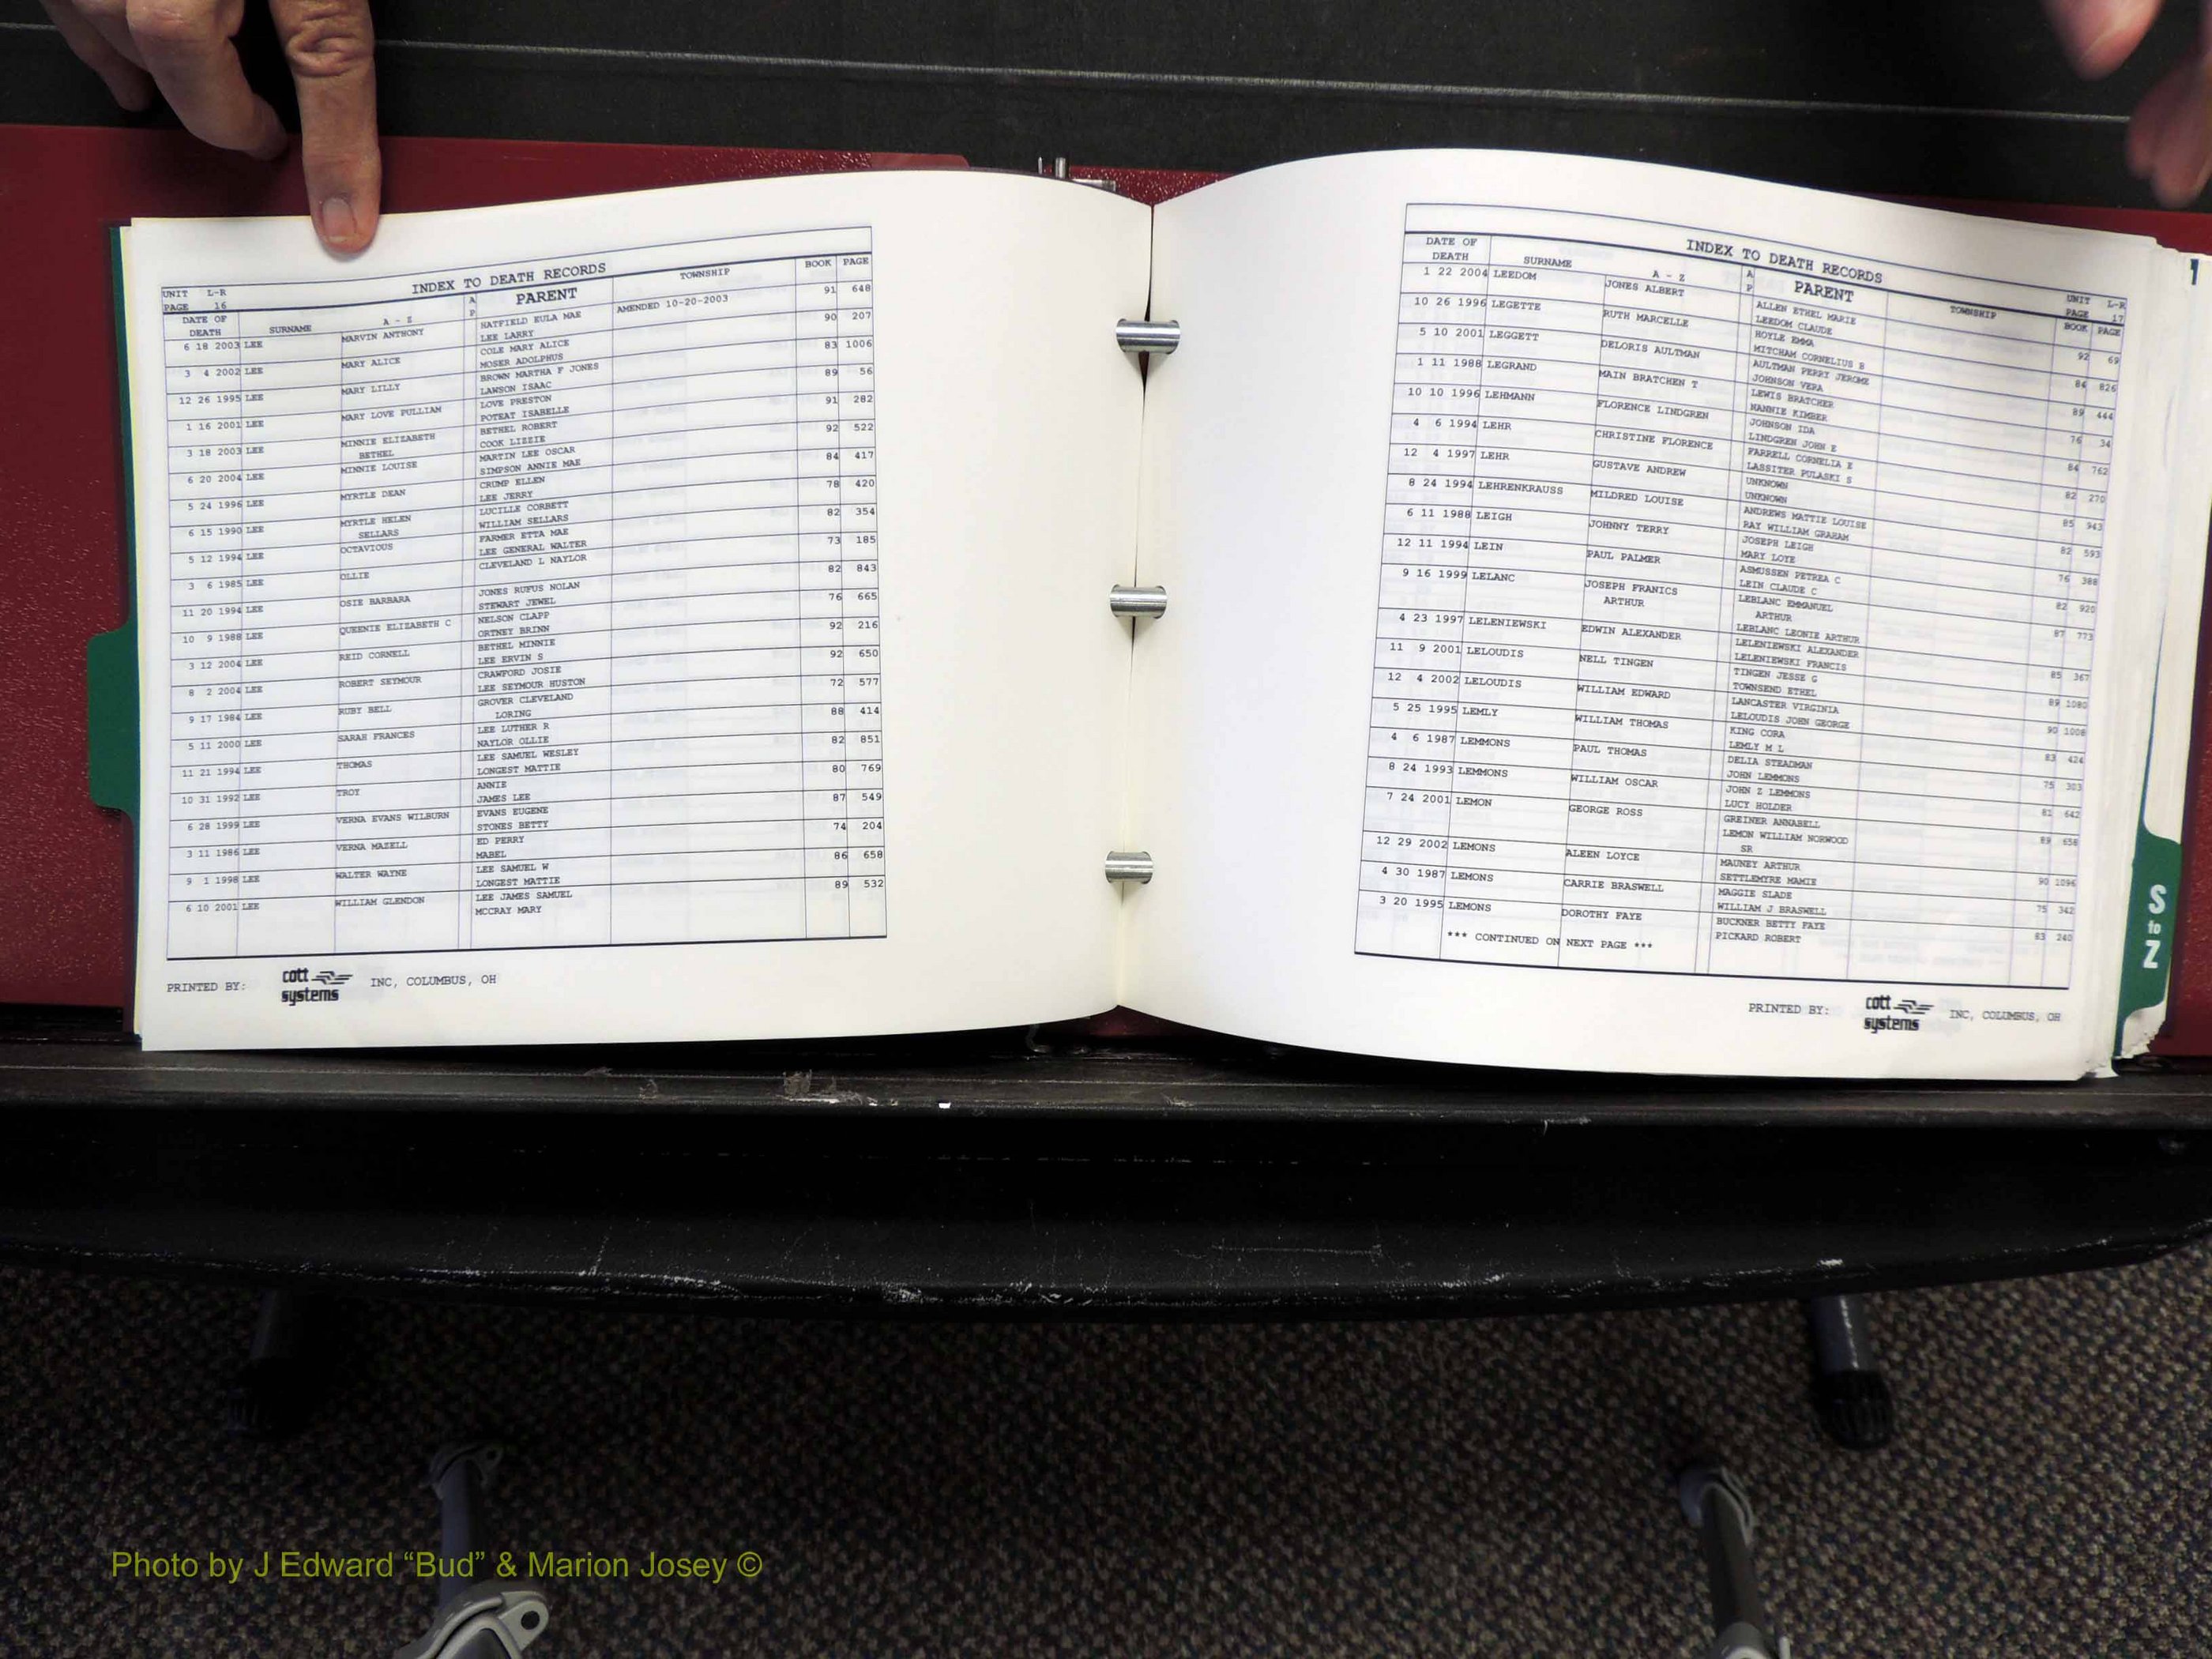 UNIT L-R
PAGE 16
INDEX TO DEATH RECORDS
DATE OF DEATH SURNAME A - Z A P PARENT TOWNSHIP BOOK PAGE
6 18 2003 LEE MARVIN ANTHONY HATFIELD EULA MAE AMENDED 10-20-2003 91 648
LEE LARRY
3 4 2002 LEE MARY ALICE COLE MARY ALICE 90 207
MOSER ADOLPHUS
12 26 1995 LEE MARY LILLY BROWN MARTHA F JONES 83 1006
LAWSON ISAAC
1 16 2001 LEE MARY LOVE PULLIAM LOVE PRESTON 89 56
POTEAT ISABELLE
3 18 2003 LEE MINNIE ELIZABETH BETHEL ROBERT 91 282
BETHEL COOK LIZZIE
6 20 2004 LEE MINNIE LOUISE MARTIN LEE OSCAR 92 522
SIMPSON ANNIE MAE
5 24 1996 LEE MYRTLE DEAN CRUMP ELLEN 84 417
LEE JERRY
6 15 1990 LEE MYRTLE HELEN LUCILLE CORBETT 78 420
SELLARS WILLIAM SELLARS
5 12 1994 LEE OCTAVIOUS FARMER ETTA MAE 82 354
LEE GENERAL WALTER
3 6 1985 LEE OLLIE CLEVELAND L NAYLOR 73 185
11 20 1994 LEE OSIE BARBARA JONES RUFUS NOLAN 82 843
STEWART JEWEL
10 9 1988 LEE QUEENIE ELIZABETH C NELSON CLAPP 76 665
ORTNEY BRINN
3 12 2004 LEE REID CORNELL BETHEL MINNIE 92 216
LEE ERVIN S
8 2 2004 LEE ROBERT SEYMOUR CRAWFORD JOSIE 92 650
LEE SEYMOUR HUSTON
9 17 1984 LEE RUBY BELL GROVER CLEVELAND 72 577
LORING
5 11 2000 LEE SARAH FRANCES LEE LUTHER R 88 414
NAYLOR OLLIE
11 21 1994 LEE THOMAS LEE SAMUEL WESLEY 82 851
LONGEST MATTIE
10 31 1992 LEE TROY ANNIE 80 769
JAMES LEE
6 28 1999 LEE VERNA EVANS WILBURN EVANS EUGENE 87 549
STONES BETTY
3 11 1986 LEE VERNA MAZELL ED PERRY 74 204
MABEL
9 1 1998 LEE WALTER WAYNE LEE SAMUEL W 86 658
LONGEST MATTIE
6 10 2001 LEE WILLIAM GLENDON LEE JAMES SAMUEL 89 532
MCCRAY MARY
PRINTED BY: cott systems INC, COLUMBUS, OH
INDEX TO DEATH RECORDS
UNIT L-R
PAGE 17
DATE OF DEATH SURNAME A - Z A P PARENT TOWNSHIP BOOK PAGE
1 22 2004 LEEDOM JONES ALBERT ALLEN ETHEL MARIE 92 69
LEEDOM CLAUDE
10 26 1996 LEGETTE RUTH MARCELLE HOYLE EMMA 84 826
MITCHAM CORNELIUS B
5 10 2001 LEGGETT DELORIS AULTMAN AULTMAN PERRY JEROME 89 444
JOHNSON VERA
1 11 1988 LEGRAND MAIN BRATCHEN T LEWIS BRATCHER 76 34
NANNIE KIMBER
10 10 1996 LEHMANN FLORENCE LINDGREN JOHNSON IDA 84 762
LINDGREN JOHN E
4 6 1994 LEHR CHRISTINE FLORENCE FARRELL CORNELIA E 82 270
LASSITER PULASKI S
12 4 1997 LEHR GUSTAVE ANDREW UNKNOWN 85 943
UNKNOWN
8 24 1994 LEHRENKRAUSS MILDRED LOUISE ANDREWS MATTIE LOUISE 82 593
RAY WILLIAM GRAHAM
6 11 1988 LEIGH JOHNNY TERRY JOSEPH LEIGH 76 388
MARY LOYE
12 11 1994 LEIN PAUL PALMER ASMUSSEN PETREA C 82 920
LEIN CLAUDE C
9 16 1999 LELANC JOSEPH FRANICS LEBLANC EMMANUEL 87 773
ARTHUR ARTHUR
LEBLANC LEONIE ARTHUR
4 23 1997 LELENIEWSKI EDWIN ALEXANDER LELENIEWSKI ALEXANDER 85 367
LELENIEWSKI FRANCIS
11 9 2001 LELOUDIS NELL TINGEN TINGEN JESSE G 89 1080
TOWNSEND ETHEL
12 4 2002 LELOUDIS WILLIAM EDWARD LANCASTER VIRGINIA 90 1008
LELOUDIS JOHN GEORGE
5 25 1995 LEMLY WILLIAM THOMAS KING CORA 83 424
LEMLY M L
4 6 1987 LEMMONS PAUL THOMAS DELIA STEADMAN 75 303
JOHN LEMMONS
8 24 1993 LEMMONS WILLIAM OSCAR JOHN Z LEMMONS 81 642
LUCY HOLDER
7 24 2001 LEMON GEORGE ROSS GREINER ANNABELL 89 658
LEMON WILLIAM NORWOOD
SR
12 29 2002 LEMONS ALEEN LOYCE MAUNEY ARTHUR 90 1096
SETTLEMYRE MAMIE
4 30 1987 LEMONS CARRIE BRASWELL MAGGIE SLADE 75 342
WILLIAM J BRASWELL
3 20 1995 LEMONS DOROTHY FAYE BUCKNER BETTY FAYE 83 240
PICKARD ROBERT
*** CONTINUED ON NEXT PAGE ***
PRINTED BY: cott systems INC, COLUMBUS, OH
S
to
Z
Photo by J Edward “Bud” & Marion Josey ©